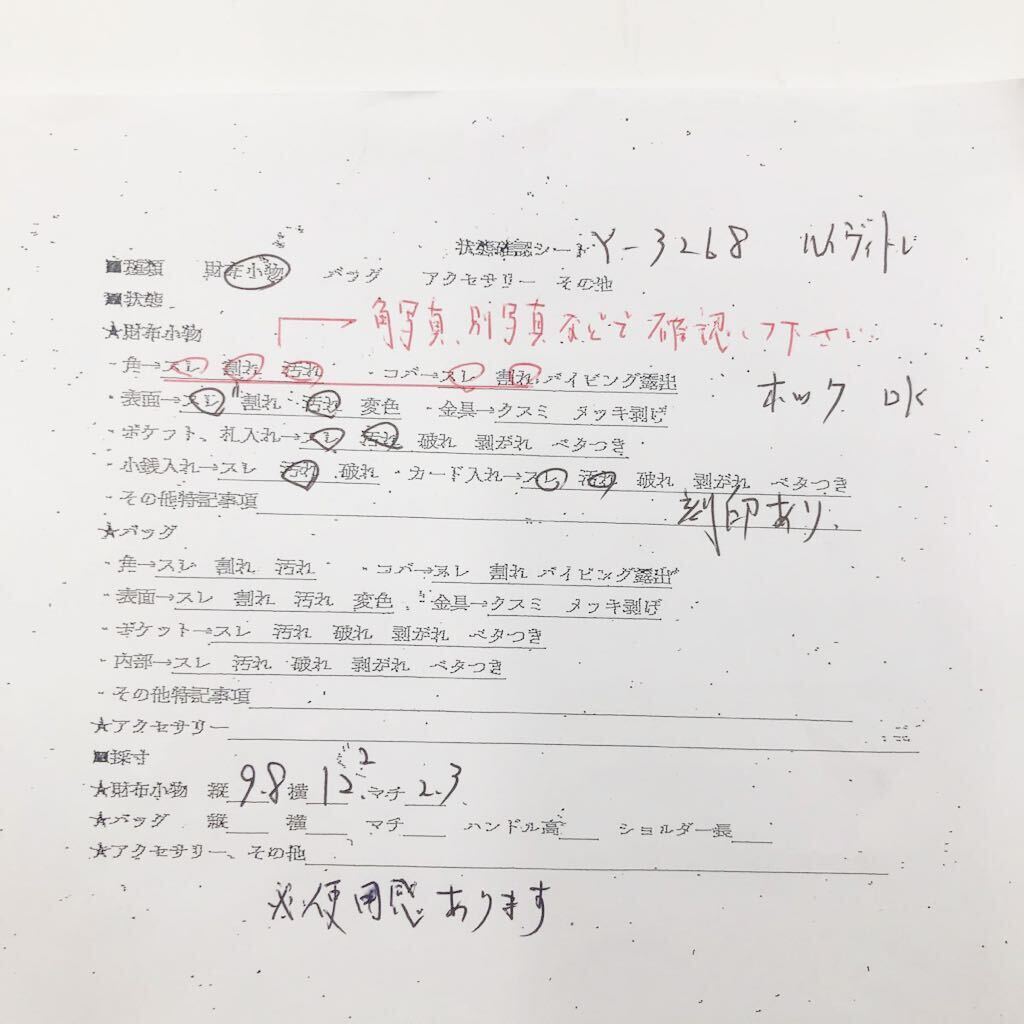 状態確認シート Y-3268 ルイヴィトン
■種類 財布小物 バッグ アクセサリー その他
■状態
★財布小物 角写真、別写真などで確認して下さい
・角→スレ 割れ 汚れ ・コバ→スレ 割れ パイピング露出
・表面→スレ 割れ 汚れ 変色 ・金具→クスミ メッキ剥げ ホック OK
・ポケット、札入れ→スレ 汚れ 破れ 剥がれ ベタつき
・小銭入れ→スレ 汚れ 破れ ・カード入れ→スレ 汚れ 破れ 剥がれ ベタつき
・その他特記事項 刻印あり
★バッグ
・角→スレ 割れ 汚れ ・コバ→スレ 割れ パイピング露出
・表面→スレ 割れ 汚れ 変色 ・金具→クスミ メッキ剥げ
・ポケット→スレ 汚れ 破れ 剥がれ ベタつき
・内部→スレ 汚れ 破れ 剥がれ ベタつき
・その他特記事項
★アクセサリー
■採寸
★財布小物 縦 9.8 横 12.2 マチ 2.3
★バッグ 縦 横 マチ ハンドル高 ショルダー長
★アクセサリー、その他
※使用感あります